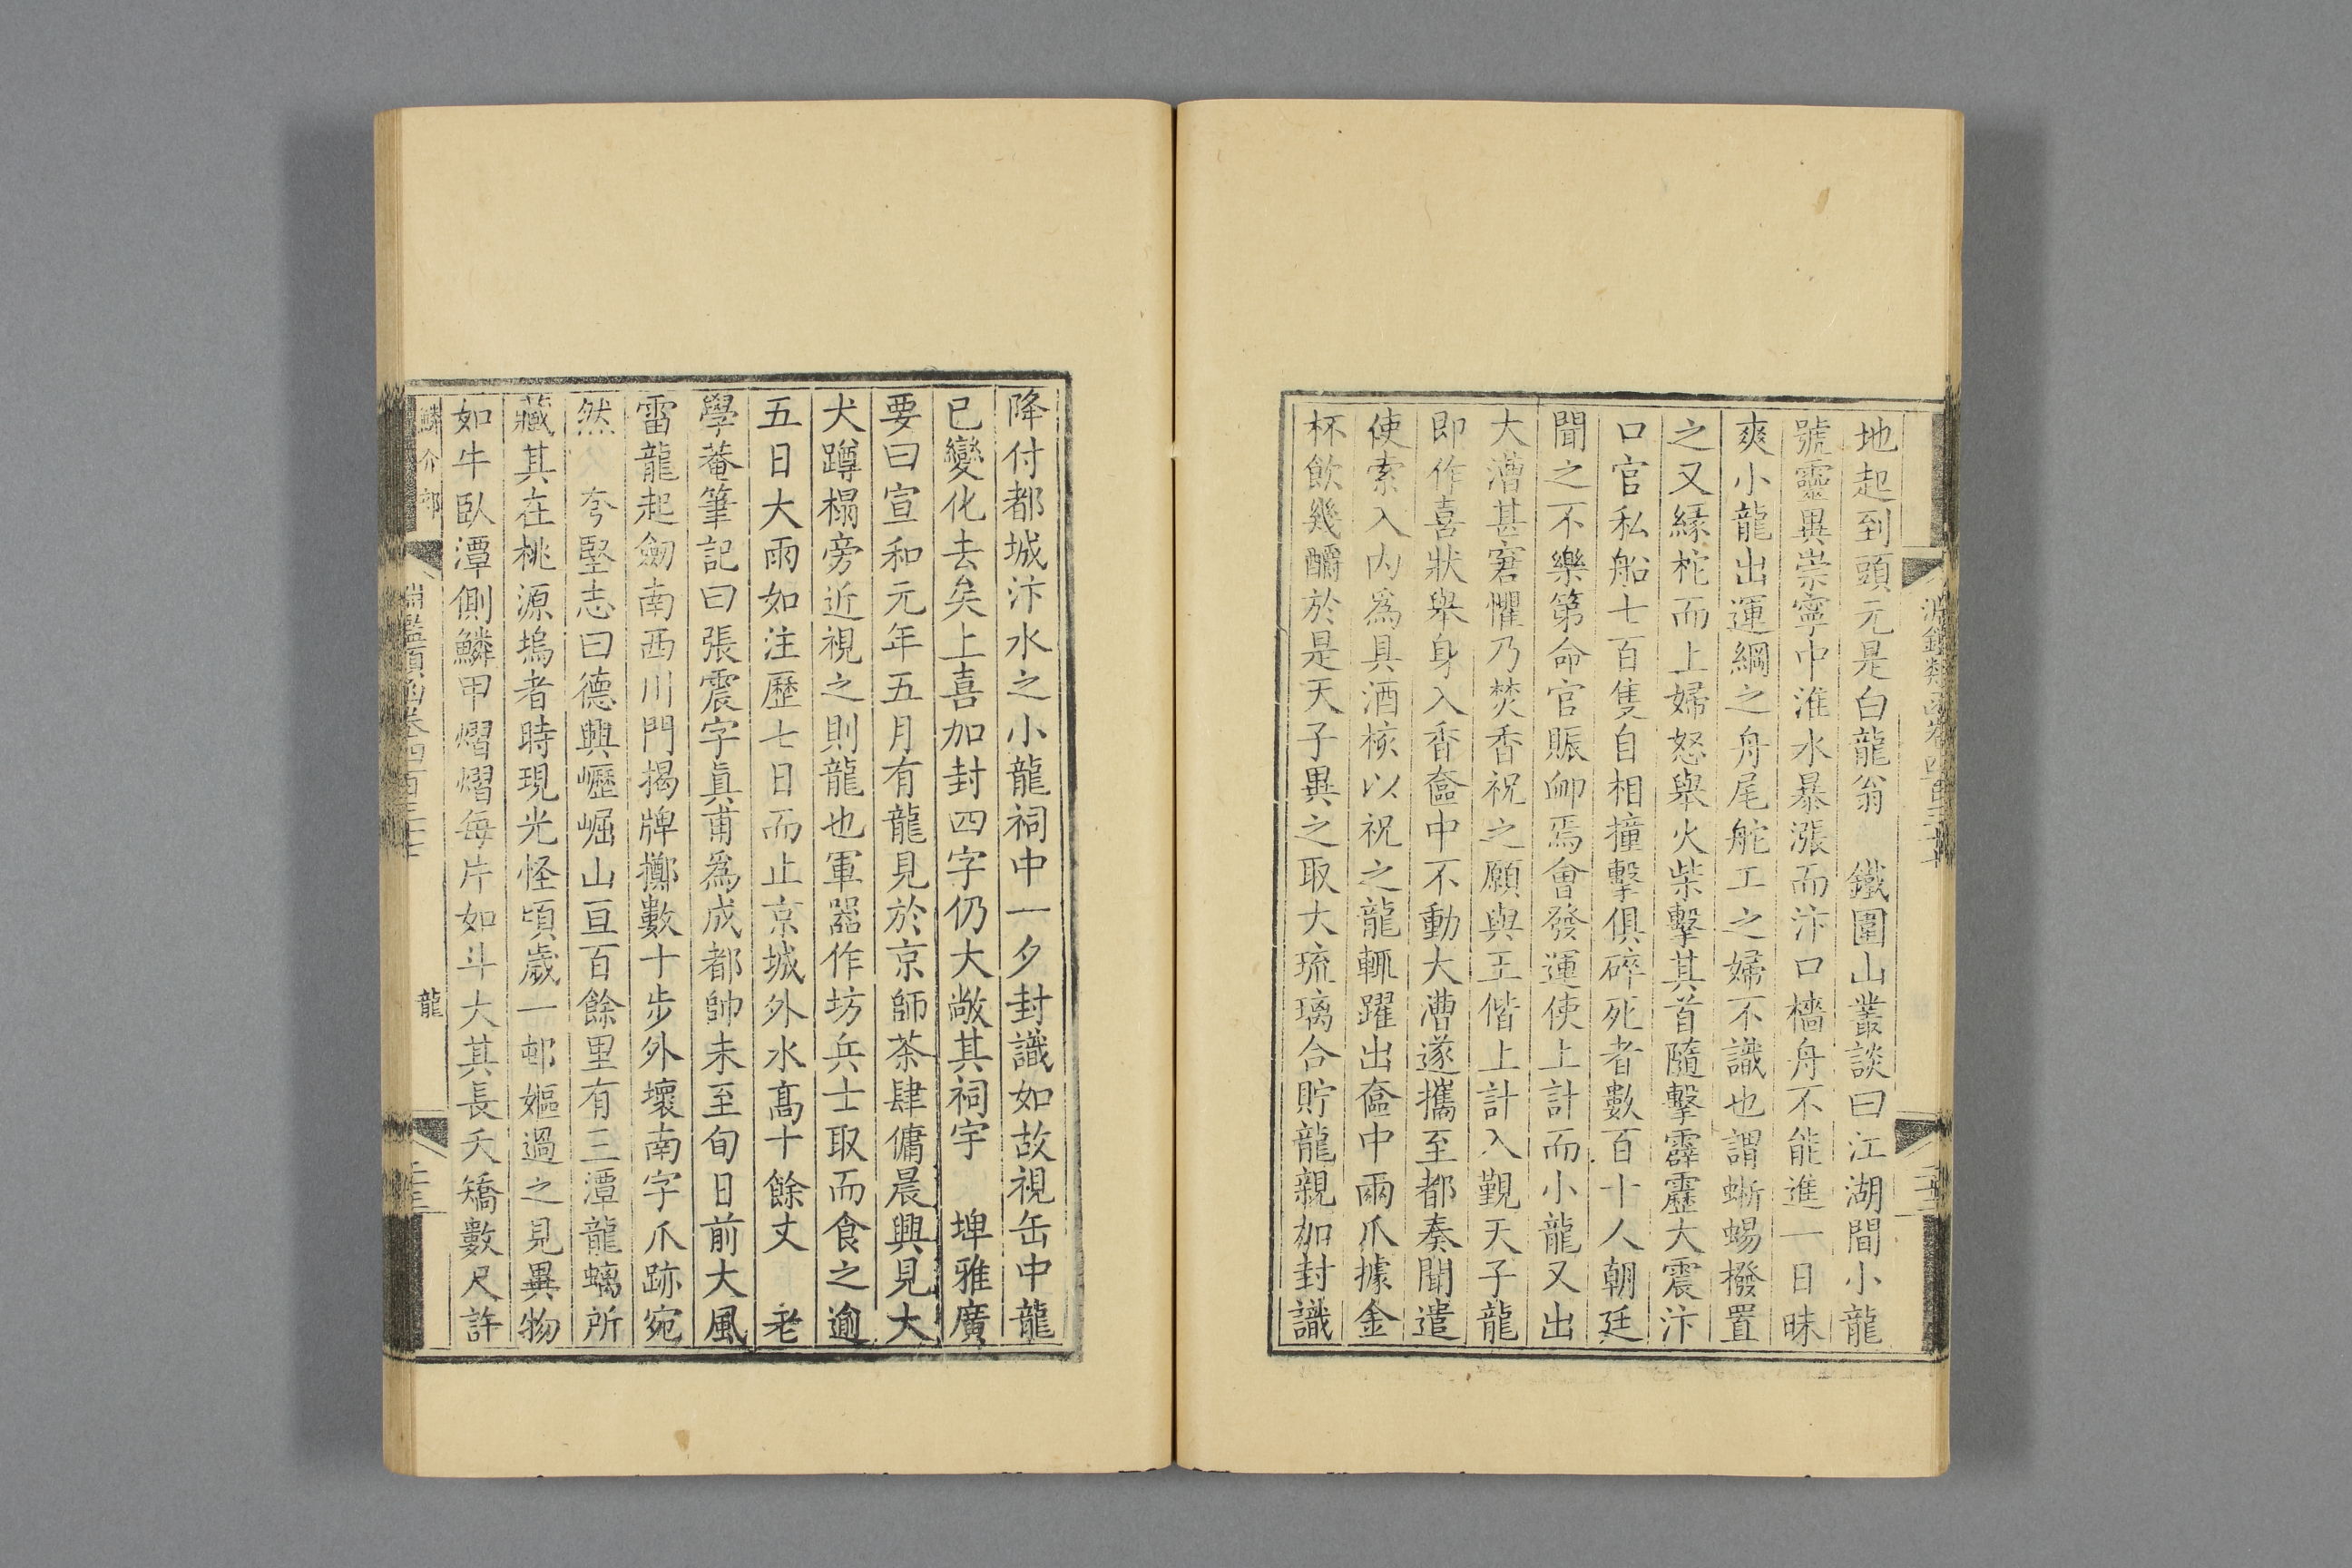 地起到頭元是白龍翁　鐵圍山叢談曰江湖間小龍
號靈異崇寧中淮水暴漲而汴口檣舟不能進一日昧
爽小龍出運綱之舟尾舵工之婦不識也謂蜥蜴撥置
之又緣柁而上婦怒舉火柴擊其首隨擊霹靂大震汴
口官私船七百隻自相撞擊俱碎死者數百十人朝廷
聞之不樂第命官賑卹焉會發運使上計而小龍又出
大漕甚窘懼乃焚香祝之願與王偕上計入覲天子龍
即作喜狀舉身入香奩中不動大漕遂攜至都奏聞遣
使索入内爲具酒核以祝之龍輒躍出奩中兩爪據金
杯飲幾釂於是天子異之取大琉璃合貯龍親加封識
降付都城汴水之小龍祠中一夕封識如故視缶中龍
已變化去矣上喜加封四字仍大敞其祠宇　埤雅廣
要曰宣和元年五月有龍見於京師茶肆傭晨興見大
犬蹲榻旁近視之則龍也軍器作坊兵士取而食之逾
五日大雨如注歷七日而止京城外水高十餘丈　老
學菴筆記曰張震字真甫爲成都帥未至旬日前大風
雷龍起劒南西川門揭牌擲數十步外壞南字爪跡宛
然　夸堅志曰德興㠣崛山亘百餘里有三潭龍螭所
藏其在桃源塢者時現光怪頃歲一邨嫗過之見異物
如牛臥潭側鱗甲熠熠每片如斗大其長夭矯數尺許
鱗介部
龍